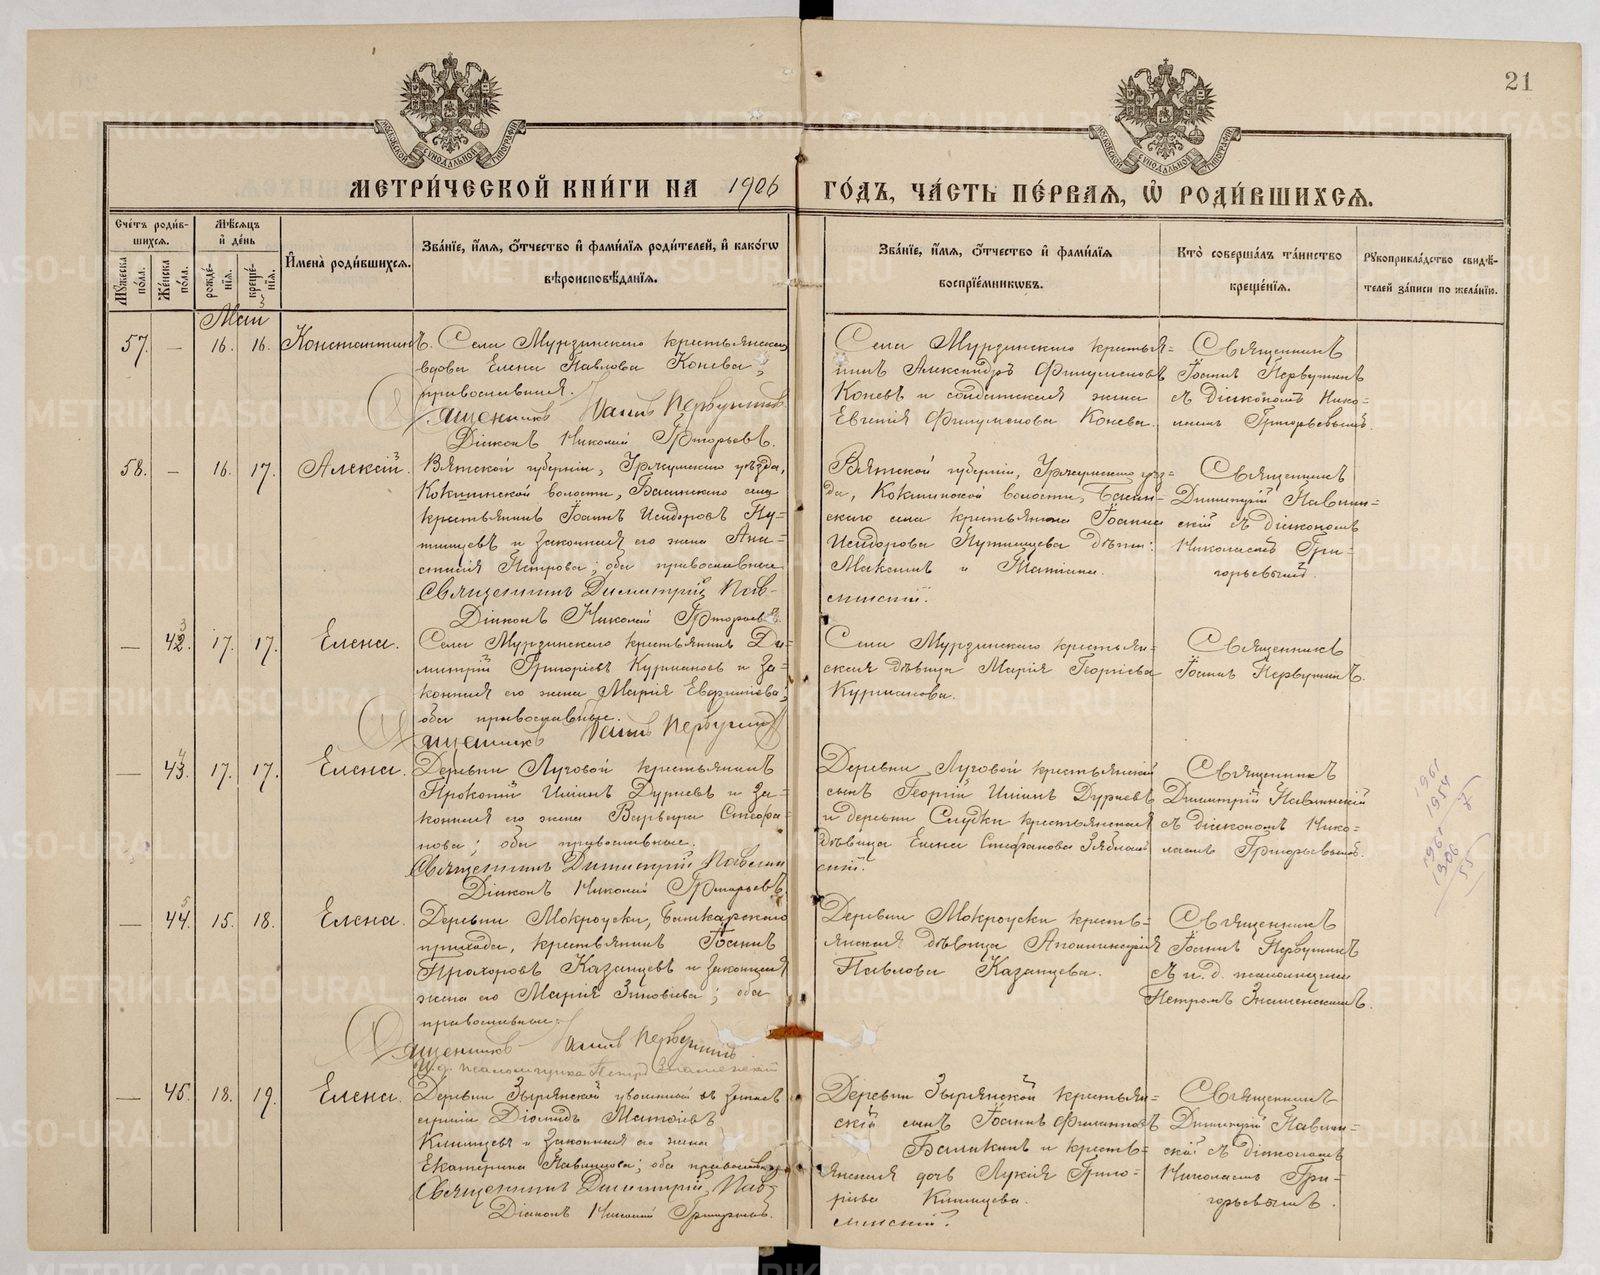 21
МОСКОВСКОЙ СѴНОДАЛЬНОЙ ТИПОГРАФІИ
МОСКОВСКОЙ СѴНОДАЛЬНОЙ ТИПОГРАФІИ
МЕТРИ́ЧЕСКОЙ КНИ́ГИ НА 1906 ГО́ДЪ, ЧА́СТЬ ПЕ́РВАЯ, Ѡ РОДИ́ВШИХСЯ.
Сче́тъ роди́в-
шихся.
Мѣ́сяцъ
и҆ де́нь
И҆мена̀ роди́вшихся.
Зва́нїе, и҆́мя, ѻ҆́тчество и҆ фами́лїя роди́телей, и҆ како́гѡ
вѣроисповѣ́данїя.
Зва́нїе, и҆́мя, ѻ҆́тчество и҆ фами́лїя
воспрїе́мникѡвъ.
Кто̀ соверша́лъ та́инство
креще́нїя.
Рꙋкоприкла́дство свидѣ́-
телей за́писи по жела́нїю.
Мꙋ́жеска
по́ла.
Же́нска
по́ла.
рожде́-
нїя.
креще́-
нїя.
Май
57. — 16. 16. Константинъ.
Села Мурзинскаго крестьянская
вдова Елена Павлова Конева,
православная.
Священникъ Іоаннъ Первушинъ
Діаконъ Николай Григорьевъ.
Села Мурзинскаго крестья-
нинъ Александръ Филуменовъ
Коневъ и солдатская жена
Евгенія Филуменова Конева.
Священникъ
Іоаннъ Первушинъ
съ діакономъ Нико-
лаемъ Григорьевымъ.
58. — 16. 17. Алексій.
Вятской губерніи, Уржумскаго уѣзда,
Кокшинской волости, села
крестьянинъ Іоаннъ Исидоровъ Пу-
тинцевъ и законная его жена Ана-
стасія Петрова; оба православные
Священникъ Димитрій Пав-
Діаконъ Николай Григорьевъ
Вятской губерніи, Уржумскаго уѣз-
да, Кокшинской волости,
скаго села крестьянина Іоанна
Исидорова Путинцева дѣти:
Максимъ и Татіана.
линскій.
Священникъ
Димитрій Павлин-
скій съ діакономъ
Николаемъ Гри-
горьевымъ.
— 42. 3 17. 17. Елена.
Села Мурзинскаго крестьянинъ Ди-
митрій Григоріевъ Курмановъ и за-
конная его жена Марія Евфиміева;
оба православные.
Священникъ Іоаннъ Первушинъ
Села Мурзинскаго крестьян-
ская дѣвица Марія Георгіева
Курманова.
Священникъ
Іоаннъ Первушинъ.
— 43. 4 17. 17. Елена.
Деревни Луговой крестьянинъ
Прокопій Іліинъ Дурневъ и за-
конная его жена Варвара Стефа-
нова; оба православные.
Священникъ Димитрій Павлин
Діаконъ Николай Григорьевъ
Деревни Луговой крестьянскій
сынъ Георгій Іліинъ Дурневъ
и деревни Слудки крестьянская
дѣвица Елена Стефанова
скій.
Священникъ
Димитрій Павлинскій
съ діакономъ Нико-
лаемъ Григорьевымъ.
1961
1954
7
1961
1906
55
— 44. 5 15. 18. Елена.
Деревни Мокроуски, Башкарскаго
прихода, крестьянинъ Іоаннъ
Прохоровъ Казанцевъ и законная
жена его Марія Зиновіева; оба
православные.
Священникъ Іоаннъ Первушинъ
И. д. псаломщика Петръ Знаменскій
Деревни Мокроуски кресть-
янская дѣвица Аполлинарія
Павлова Казанцева.
Священникъ
Іоаннъ Первушинъ
съ и. д. псаломщика
Петромъ Знаменскимъ.
— 45. 18. 19. Елена.
Деревни Зырянской уволенный въ запасъ
арміи Діомидъ Матѳіевъ
Клинцевъ и законная его жена
Екатерина Павлинова; оба православные
Священникъ Димитрій Пав-
Діаконъ Николай Григорьевъ.
Деревни Зырянской крестьян-
скій сынъ Іоаннъ Филипповъ
Балакинъ и кресть-
янская дочь Лукія Григо-
рьева Клинцева.
линскій.
Священникъ
Димитрій Павлин-
скій съ діакономъ
Николаемъ Гри-
горьевымъ.
METRIKI.GASO-URAL.RU